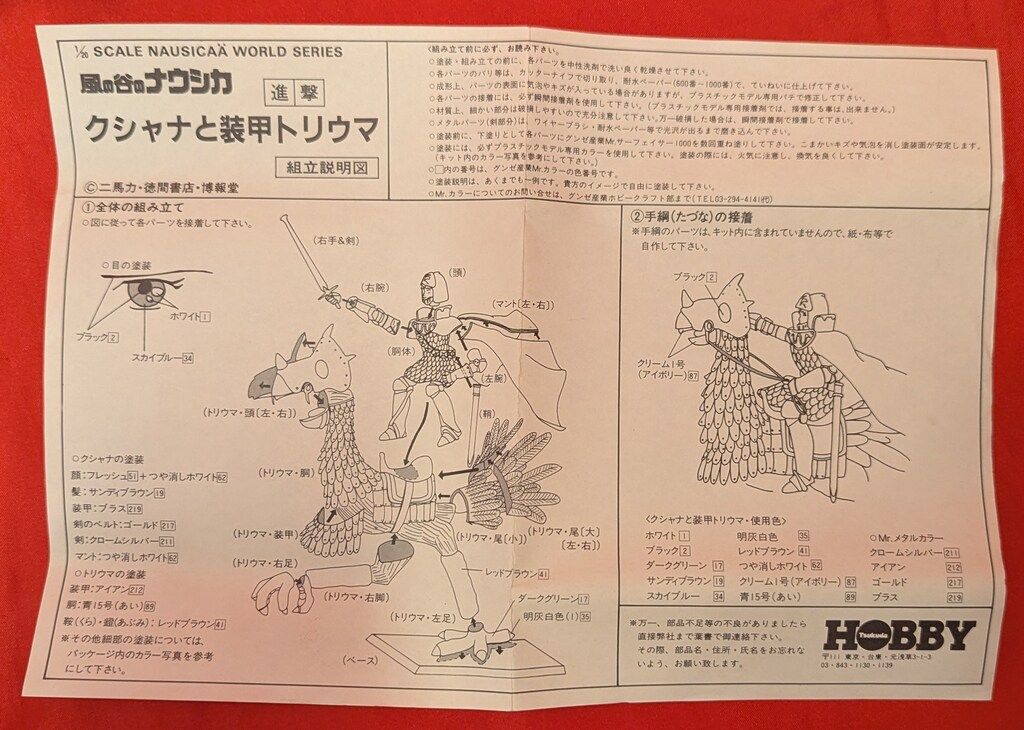 1/20 SCALE NAUSICAÄ WORLD SERIES
風の谷のナウシカ
進撃
クシャナと装甲トリウマ
組立説明図
Ⓒ二馬力・徳間書店・博報堂
〈組み立て前に必ず、お読み下さい。
○塗装・組み立ての前に、各パーツを中性洗剤で洗い良く乾燥させて下さい。
○各パーツのバリ等は、カッターナイフで切り取り、耐水ペーパー(600番〜1000番)で、ていねいに仕上げて下さい。
○成形上、パーツの表面に気泡やキズが入っている場合がありますが、プラスチックモデル専用パテで修正して下さい。
○各パーツの接着には、必ず瞬間接着剤を使用して下さい。(プラスチックモデル専用接着剤では、接着する事は、出来ません。)
○材質上、細かい部分は破損しやすいので充分注意して下さい。万一破損した場合は、瞬間接着剤で接着して下さい。
○メタルパーツ(剣部分)は、ワイヤーブラシ・耐水ペーパー等で光沢が出るまで磨き込んで下さい。
○塗装前に、下塗りとして各パーツにグンゼ産業Mr.サーフェイサー1000を数回重ね塗りして下さい。こまかいキズや気泡を消し塗装面が安定します。
○塗装には、必ずプラスチックモデル専用カラーを使用して下さい。塗装の際には、火気に注意し、換気を良くして下さい。
(キット内のカラー写真を参考にして下さい。)
○□内の番号は、グンゼ産業Mr.カラーの色番号です。
○塗装説明は、あくまでも一例です。貴方のイメージで自由に塗装して下さい。
○Mr.カラーについてのお問い合せは、グンゼ産業ホビークラフト部まで(TEL03-294-4141㈹)
①全体の組み立て
○図に従って各パーツを接着して下さい。
○目の塗装
ホワイト1
ブラック2
スカイブルー34
(右手&剣)
(右腕)
(頭)
(マント[左・右])
(胴体)
(左腕)
(鞘)
(トリウマ・頭[左・右])
(トリウマ・胴)
(トリウマ・装甲)
(トリウマ・右足)
(トリウマ・右脚)
(トリウマ・尾[小])
(トリウマ・尾[大]
[左・右])
レッドブラウン41
ダークグリーン17
明灰白色(1)35
(トリウマ・左足)
(ベース)
○クシャナの塗装
顔:フレッシュ51+つや消しホワイト62
髪:サンディブラウン19
装甲:ブラス219
剣のベルト:ゴールド217
剣:クロームシルバー211
マント:つや消しホワイト62
○トリウマの塗装
装甲:アイアン212
胴:青15号(あい)89
鞍(くら)・鐙(あぶみ):レッドブラウン41
※その他細部の塗装については、
パッケージ内のカラー写真を参考
にして下さい。
②手綱(たづな)の接着
※手綱のパーツは、キット内に含まれていませんので、紙・布等で
自作して下さい。
ブラック2
クリーム1号
(アイボリー)87
〈クシャナと装甲トリウマ・使用色〉
ホワイト1 明灰白色35 ○Mr.メタルカラー
ブラック2 レッドブラウン41 クロームシルバー211
ダークグリーン17 つや消しホワイト62 アイアン212
サンディブラウン19 クリーム1号(アイボリー)87 ゴールド217
スカイブルー34 青15号(あい)89 ブラス219
※万一、部品不足等の不良がありましたら
直接弊社まで葉書で御連絡下さい。
その際、部品名・住所・氏名をお忘れな
いよう、お願い致します。
HOBBY
Tsukuda
〒111 東京・台東・元浅草3-1-3
03・843・1130・1139